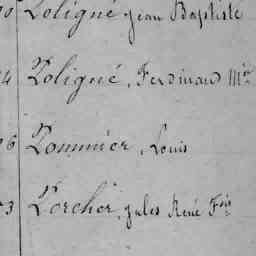 Poligné Jean Baptiste
4 Poligné, Ferdinand Mie
6 Pommier, Louis
3 Porcher, Jules René Fois